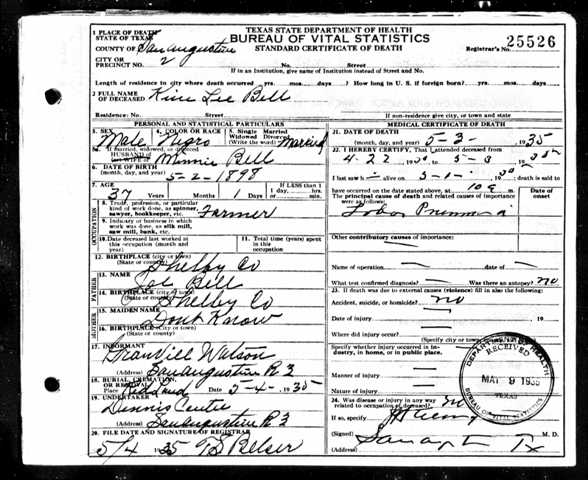 TEXAS STATE DEPARTMENT OF HEALTH
BUREAU OF VITAL STATISTICS
STANDARD CERTIFICATE OF DEATH
1 PLACE OF DEATH
STATE OF TEXAS
COUNTY OF San Augustine
CITY OR
PRECINCT NO. 2
No. Street
Registrar's No. 25526
If in an Institution, give name of Institution instead of Street and No.
Length of residence in city where death occurred yrs. mos. days? How long in U. S. if foreign born? yrs. mos. days
2 FULL NAME
OF DECEASED Lee Bell
Residence: No. Street
If non-residence give city, or town and state
PERSONAL AND STATISTICAL PARTICULARS
3. SEX Male
4. COLOR OR RACE Negro
5. Single Married
Widowed Divorced
(Write the word) Married
5a. If married, widowed, or divorced
HUSBAND OF
or WIFE of Minnie Bell
6. DATE OF BIRTH
(month, day, and year) 5-2-1898
7. AGE 37 Years Months 1 Days
If LESS than 1
1 day, hrs.
min.
8. Trade, profession, or particular
kind of work done, as spinner,
sawyer, bookkeeper, etc. Farmer
9. Industry or business in which
work was done, as silk mill,
saw mill, bank, etc.
10. Date deceased last worked at
this occupation (month and
year)
11. Total time (years)
spent in this
occupation
OCCUPATION
12. BIRTHPLACE (City or town)
(State or county) Shelby Co
FATHER
13. NAME Joe Bell
14. BIRTHPLACE (City or town)
(State or county) Shelby Co
MOTHER
15. MAIDEN NAME Dont Know
16. BIRTHPLACE (City or town)
(State or county)
17. INFORMANT Watson
(Address) San Augustine R 3
18. BURIAL, CREMATION,
OR REMOVAL
Place Date 5-4-1935
19. UNDERTAKER Dennis
(Address) San Augustine R 3
20. FILE DATE AND SIGNATURE OF REGISTRAR
5/4 1935
MEDICAL CERTIFICATE OF DEATH
21. DATE OF DEATH
(month, day, and year) 5-3- 1935
22. I HEREBY CERTIFY, That I attended deceased
from 4-22 19 to 5-3 1935
I last saw alive on 5-1- 19 death is said
to have occurred on the date stated above, at 10 m.
The principal cause of death and related causes of
importance were as follows:
Date of
onset
Lobar Pneumonia
Other contributory causes of importance:
Name of operation date of
What test confirmed diagnosis? Was there an autopsy? no
23. If death was due to external causes (violence) fill in also the following:
Accident, suicide, or homicide? no
Date of injury 19
Where did injury occur?
(Specify city or town, county
Specify whether injury occurred in
industry, in home, or in public place.
Manner of injury
Nature of injury
24. Was disease or injury in any way
related to occupation of deceased? no
If so, specify
(Signed) M. D.
Tx
DEPARTMENT OF HEALTH
RECEIVED
MAY 9 1935
TEXAS
BUREAU OF VITAL STATISTICS